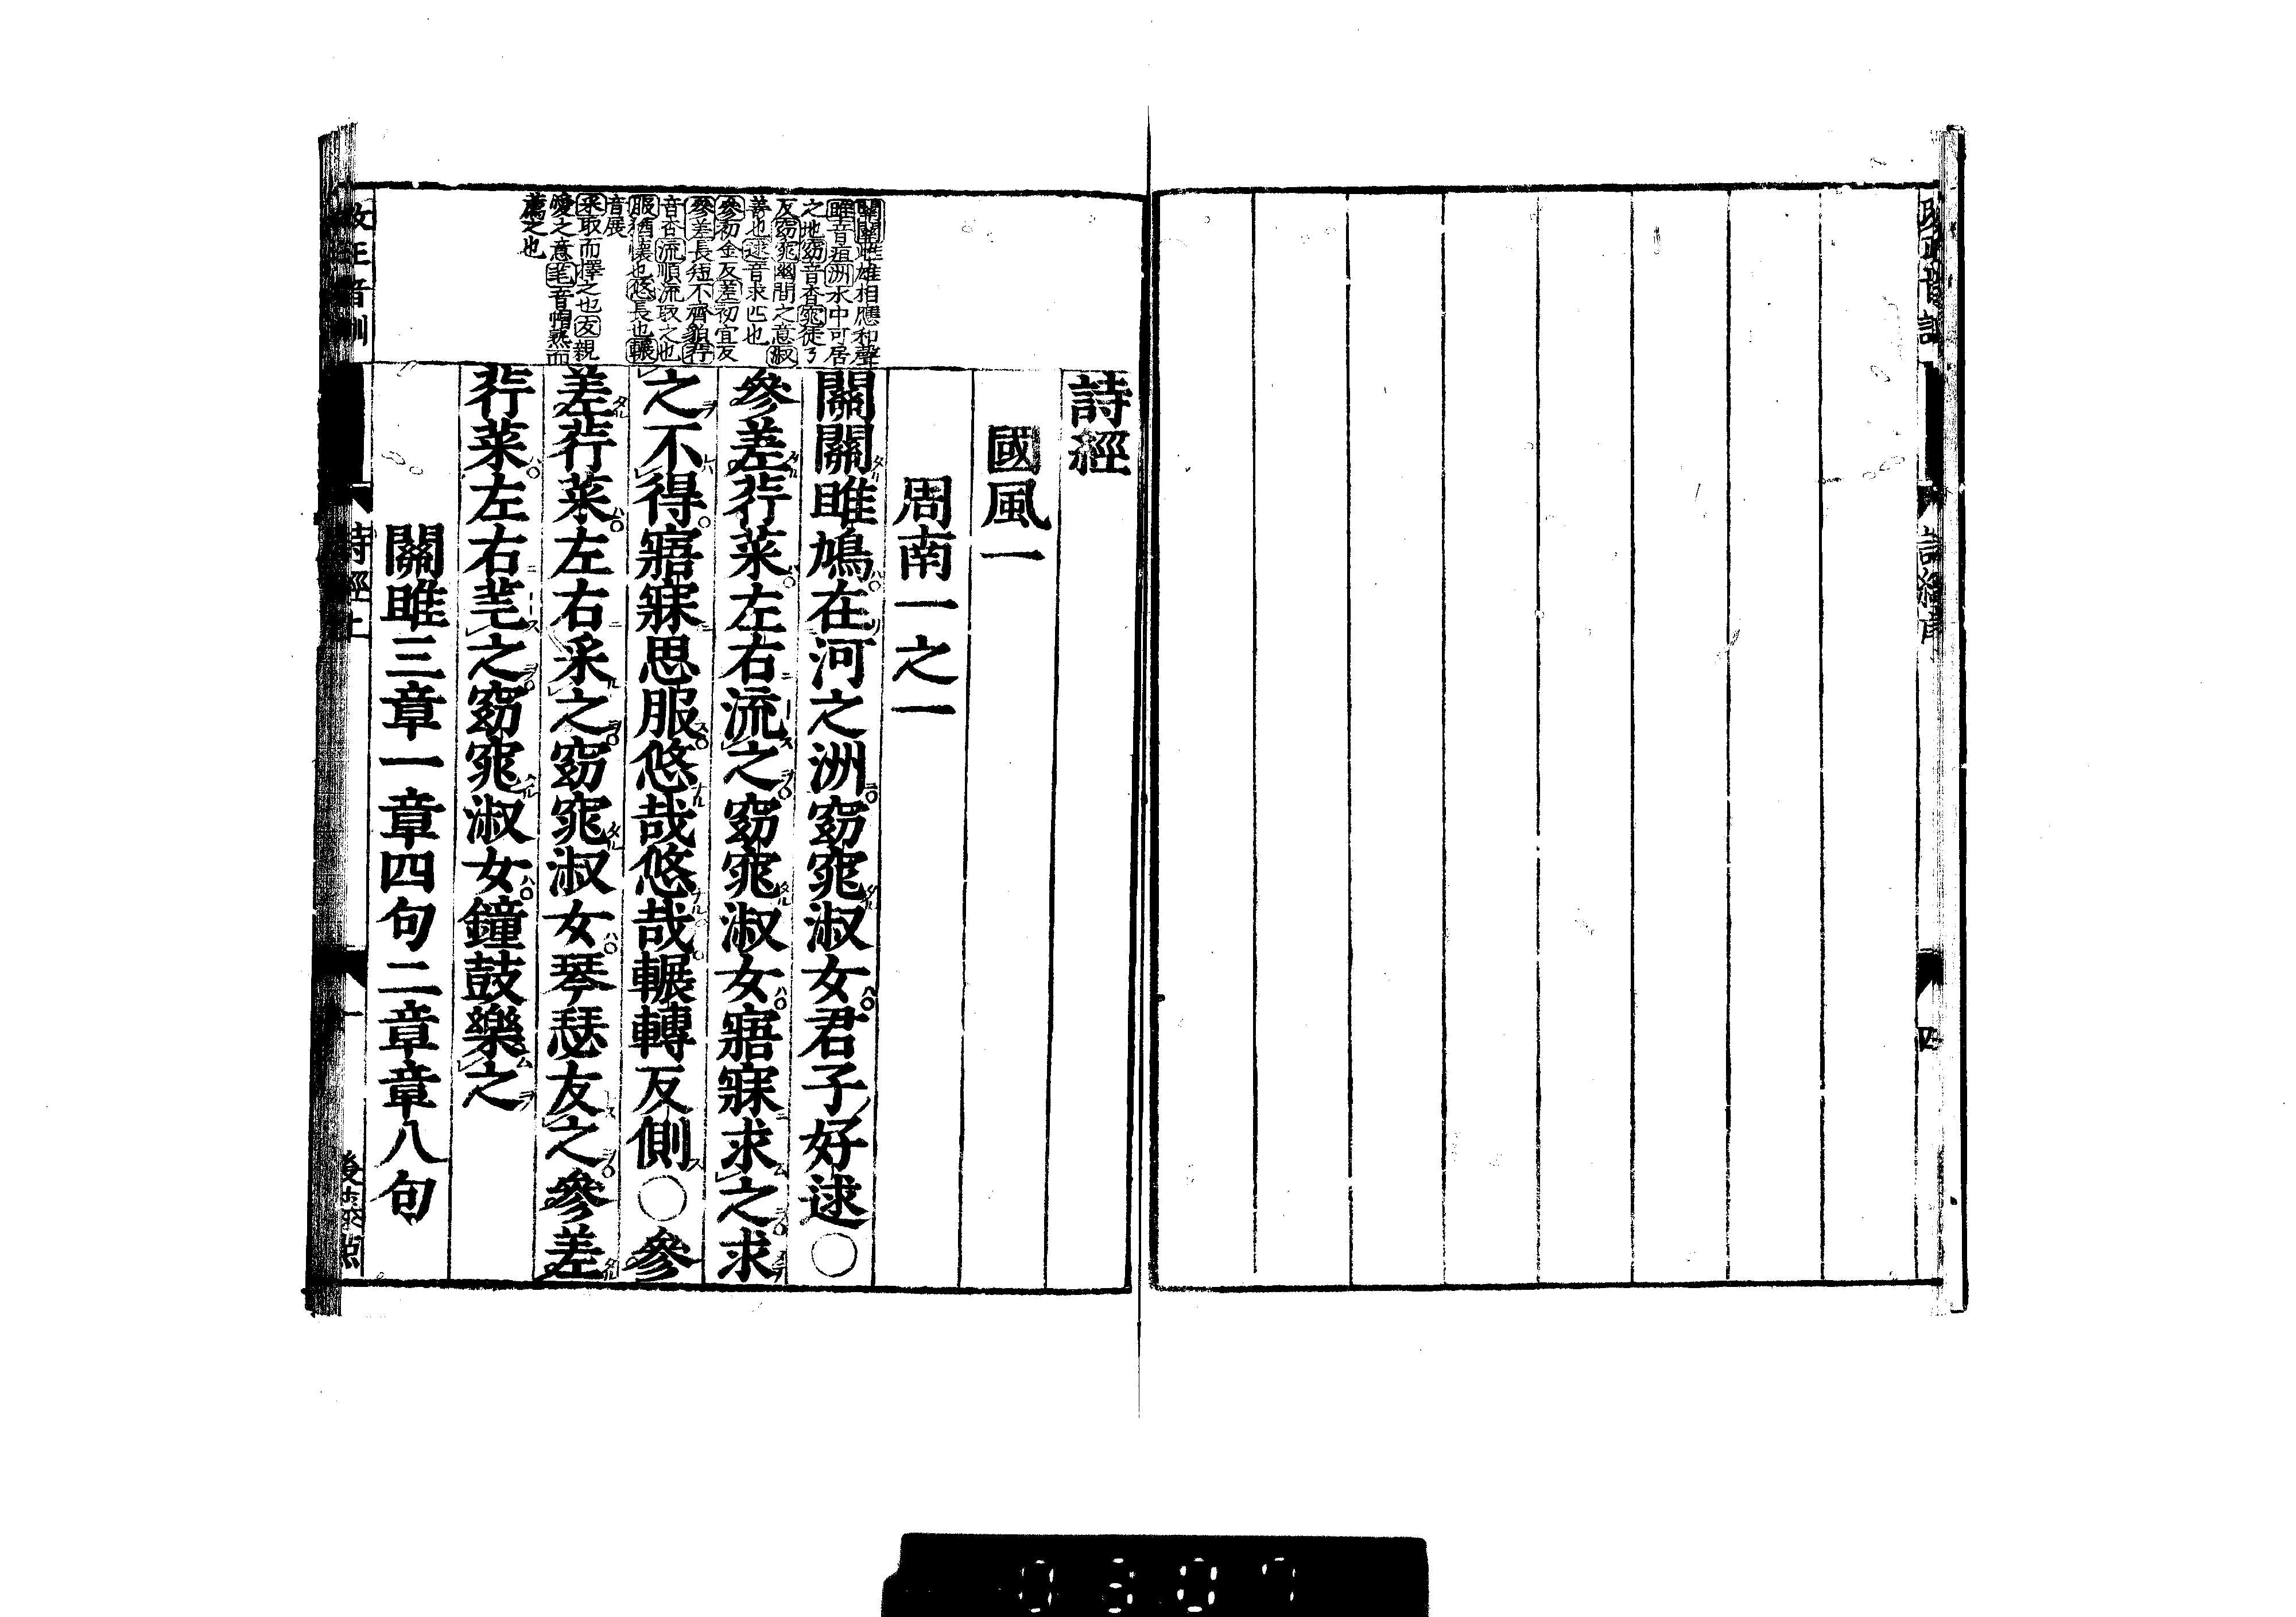 詩經
國風一
周南一之一
關關雎鳩在河之洲窈窕淑女君子好逑○
參差荇菜左右流之窈窕淑女寤寐求之求
之不得寤寐思服悠哉悠哉輾轉反側○參
差荇菜左右采之窈窕淑女琴瑟友之參差
荇菜左右芼之窈窕淑女鐘鼓樂之
關雎三章一章四句二章章八句
關關雌雄相應和聲
雎音疽洲水中可居
之地窈音杳窕徒了
反窈窕幽間之意淑
善也逑音求匹也
參初金反差初宜反
參差長短不齊貌荇
音杏流順流取之也
服猶懷也悠長也輾
音展
采取而擇之也友親
愛之意芼音帽熟而
薦之也
詩經上
一
後藤點
四
0307